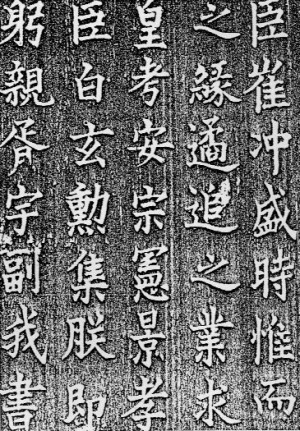 臣崔冲盛時惟而
之緣遹追之業求
皇考安宗憲景孝
臣白玄勳集朕即
躬親胥宇副我書